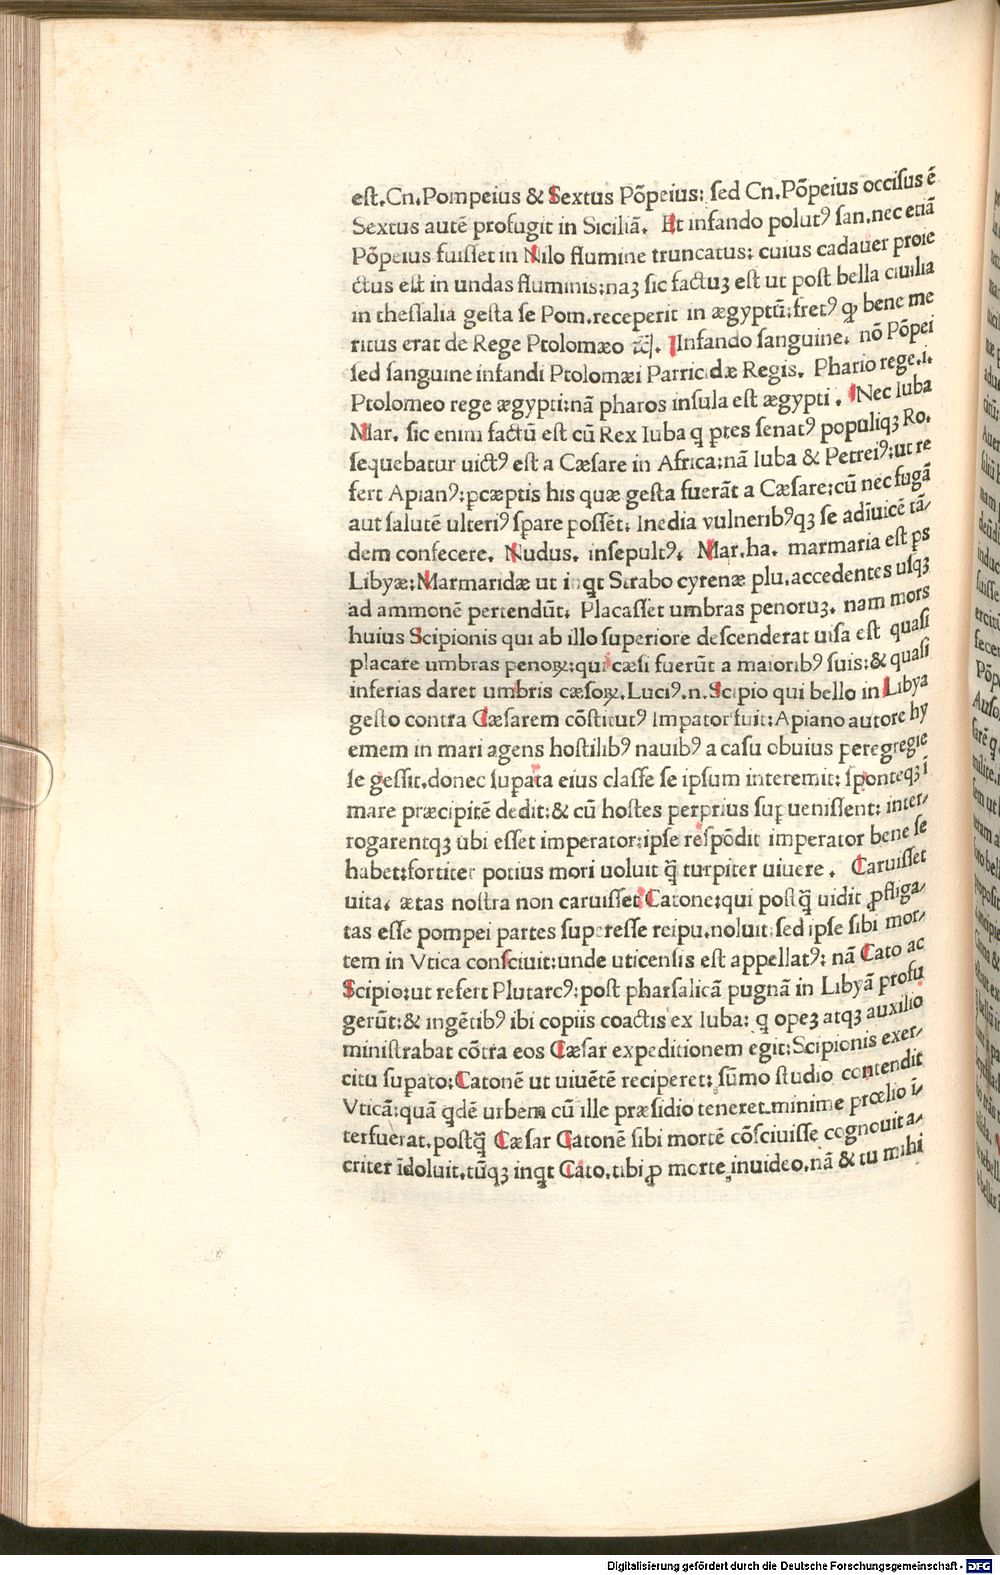 eſt.Cn.Pompeius & Sextus Põpeius: ſed Cn.Põpeius occiſus ẽ
Sextus autẽ profugit in Siciliã. Et infando polutꝰ ſan.nec etiã
Põpeius fuiſſet in Nilo flumine truncatus: cuius cadauer proie
ctus eſt in undas fluminis:naꝫ ſic factuꝫ eſt ut poſt bella ciuilia
in theſſalia geſta ſe Pom.receperit in ægyptũ:fretꝰ ꝙ bene me
ritus erat de Rege Ptolomæo ⁊c̃. Infando ſanguine. nõ Põpei
ſed ſanguine infandi Ptolomæi Parricidæ Regis. Phario rege.i.
Ptolomeo rege ægypti:nã pharos inſula eſt ægypti . Nec Iuba
Mar. ſic enim factũ eſt cũ Rex Iuba q ꝑtes ſenatꝰ populiqꝫ Ro.
ſequebatur uictꝰ eſt a Cæſare in Africa:nã Iuba & Petreiꝰ:ut re
fert Apianꝰ:ꝑcæptis his quæ geſta fuerãt a Cæſare:cũ nec fugã
aut ſalutẽ ulteriꝰ ſꝑare poſſẽt: Inedia vulneribꝰqꝫ ſe adĩuicẽ tã/
dem confecere. Nudus. inſepultꝰ. Mar.ha. marmaria eſt ꝑs
Libyæ:Marmaridæ ut inqt Strabo cyrenæ plu.accedentes uſqꝫ
ad ammonẽ pertendũt. Placaſſet umbras penoruꝫ. nam mors
huius Scipionis qui ab illo ſuperiore deſcenderat uiſa eſt quaſi
placare umbras penoꝝ:qui cæſi fuerũt a maioribꝰ ſuis:& quaſi
inferias daret umbris cæſoꝝ.Luciꝰ.n.Scipio qui bello in Libya
geſto contra Cæſarem cõſtitutꝰ Imꝑator fuit:Apiano autore hy
emem in mari agens hoſtilibꝰ nauibꝰ a caſu obuius ꝑegregie
ſe geſſit.donec ſuꝑata eius claſſe ſe ipſum interemit: ſponteqꝫ ĩ
mare præcipitẽ dedit:& cũ hoſtes perprius ſuꝑueniſſent: inter/
rogarentqꝫ ubi eſſet imperator:ipſe reſpõdit imperator bene ſe
habet:fortiter potius mori uoluit q̃ turpiter uiuere . Caruiſſet
uita. ætas noſtra non caruiſſet Catone:qui poſtq̃ uidit ꝓfliga/
tas eſſe pompei partes ſuꝑeſſe reipu.noluit:ſed ipſe ſibi mor/
tem in Vtica conſciuit:unde uticenſis eſt appellatꝰ: nã Cato ac
Scipio:ut refert Plutarcꝰ:poſt pharſalicã pugnã in Libyã profu
gerũt:& ingẽtibꝰ ibi copiis coactis ex Iuba: q opeꝫ atqꝫ auxilio
miniſtrabat cõtra eos Cæſar expeditionem egit:Scipionis exer/
citu ſuꝑato:Catonẽ ut uiuẽtẽ reciperet: ſũmo ſtudio contendit
Vticã:quã qdẽ urbem cũ ille præſidio teneret minime prœlio ĩ/
terfuerat.poſtq̃ Cæſar Catonẽ ſibi mortẽ cõſciuiſſe cognouit a/
criter ĩdoluit.tũqꝫ inqt Cato.tibi ꝓ morte inuideo.nã & tu mihi
Digitalisierung gefördert durch die Deutsche Forschungsgemeinschaft - DFG